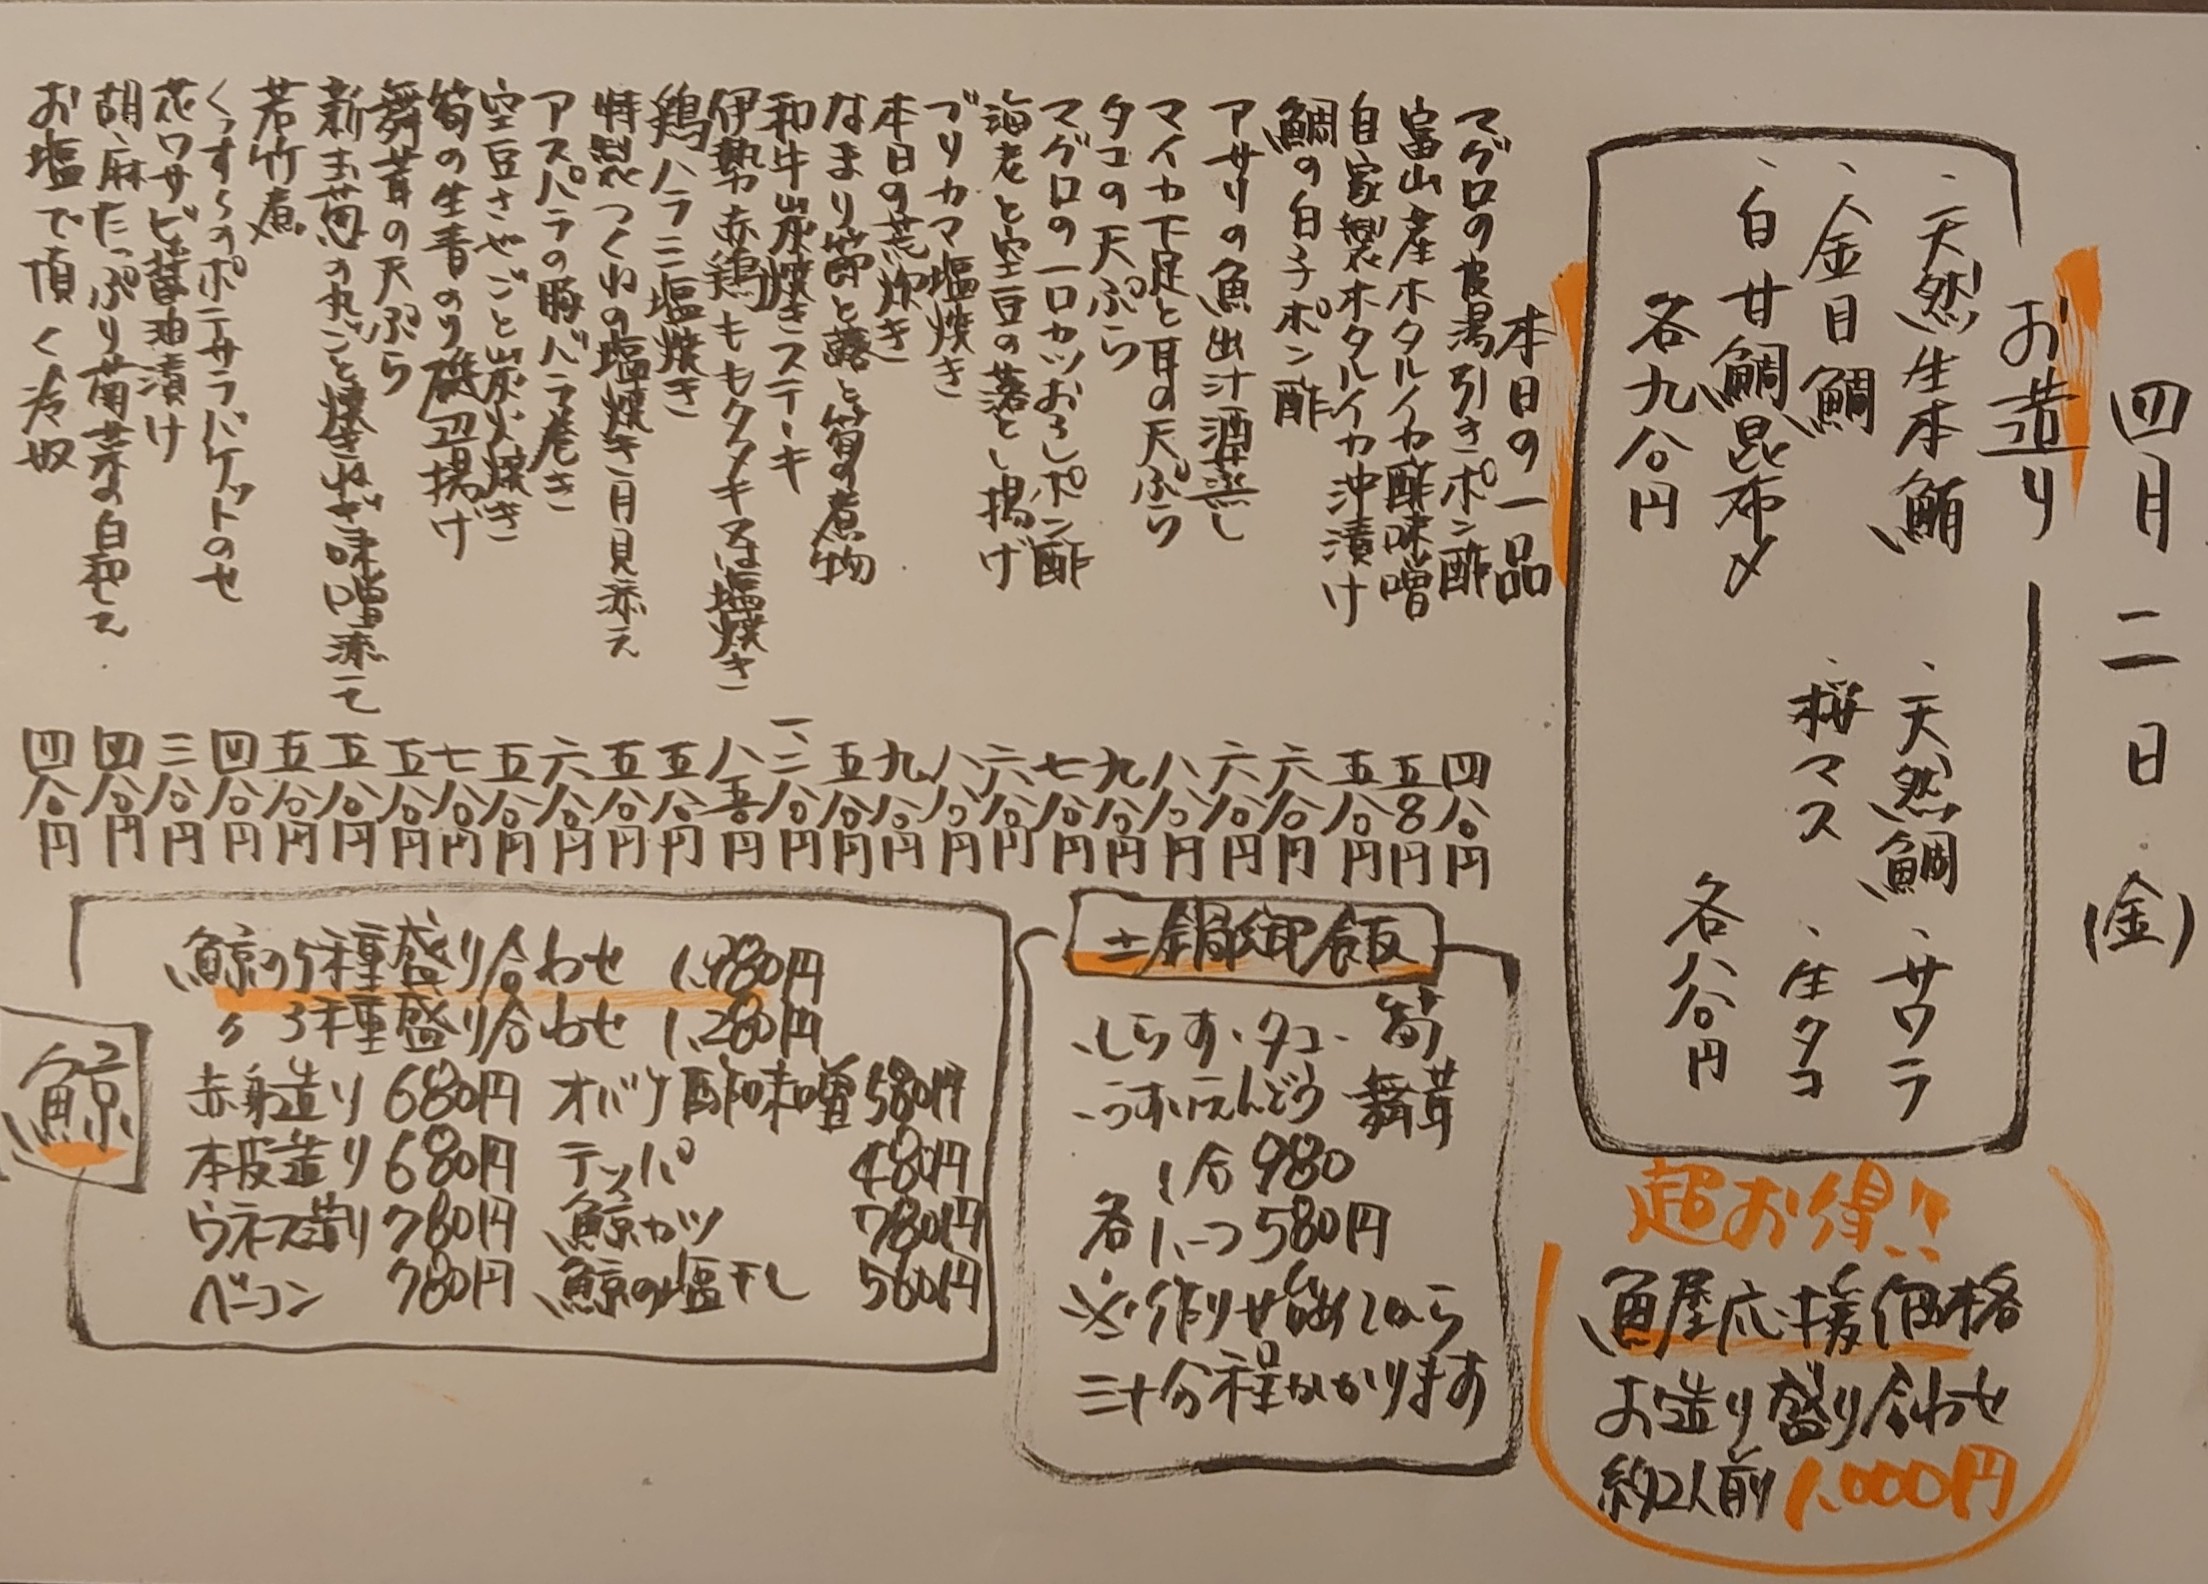 四月二日(金)
お造り
、天然生本鮪
、天然鯛
、サワラ
、金目鯛
、桜マス
、生タコ
、白甘鯛昆布〆
各九〇〇円
各八〇〇円
超お得!!
魚屋応援価格
お造り盛り合わせ
約2人前 1,000円
本日の一品
マグロの皮湯引きポン酢 四〇〇円
富山産ホタルイカ酢味噌 五八〇円
自家製ホタルイカ沖漬け 五〇〇円
鯛の白子ポン酢 六〇〇円
アサリの魚出汁酒蒸し 六〇〇円
マイカ下足と耳の天ぷら 八〇〇円
タコの天ぷら 九〇〇円
マグロの一口カツおろしポン酢 七〇〇円
海老と空豆の落とし揚げ 六〇〇円
ブリカマ塩焼き 八〇〇円
本日の荒炊き 九〇〇円
なまり節と蕗と筍の煮物 五〇〇円
和牛炭焼きステーキ 一、二〇〇円
伊勢赤鶏ももタタキ又は塩焼き 八五〇円
鶏ハラミ塩焼き 五〇〇円
特製つくねの塩焼き月見添え 五〇〇円
アスパラの豚バラ巻き 六〇〇円
空豆さやごと炭火焼き 五〇〇円
筍の生青のり磯辺揚げ 七〇〇円
舞茸の天ぷら 五〇〇円
新玉葱の丸ごと焼きねぎ味噌添て 五〇〇円
若竹煮 五〇〇円
くんすらのポテサラバケットのせ 四〇〇円
花ワサビ醤油漬け 三〇〇円
胡麻たっぷり菊菜の白和え 四〇〇円
お塩で頂く冷奴 四〇〇円
土鍋御飯
、しらす、タコ、筍
、うすいえんどう 舞茸
1合 980
各 1人一つ 580円
※作り始めてから
三十分程かかります
鯨
鯨の5種盛り合わせ 1,980円
〃 3種盛り合わせ 1,280円
赤身造り 680円 オバケ酢味噌 580円
本皮造り 680円 テッパ 480円
ウネス造り 780円 鯨カツ 780円
ベーコン 780円 鯨の塩干し 560円